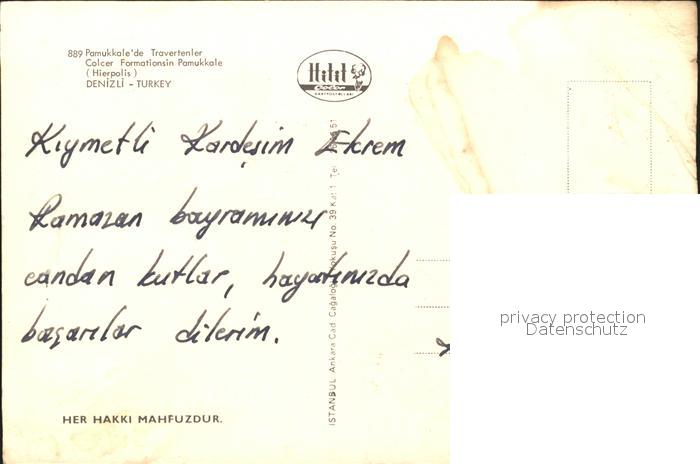 889 Pamukkale'de Travertenler
Colcer Formationsin Pamukkale
(Hierpolis)
DENİZLİ - TURKEY
Hitit
KARTPOSTALLARI
Kıymetli Kardeşim Ekrem
Ramazan bayramınızı
candan kutlar, hayatınızda
başarılar dilerim.
İSTANBUL Ankara Cad. Cağaloğlu Yokuşu No. 39 Kat 1 Tel
51
HER HAKKI MAHFUZDUR.
privacy protection
Datenschutz